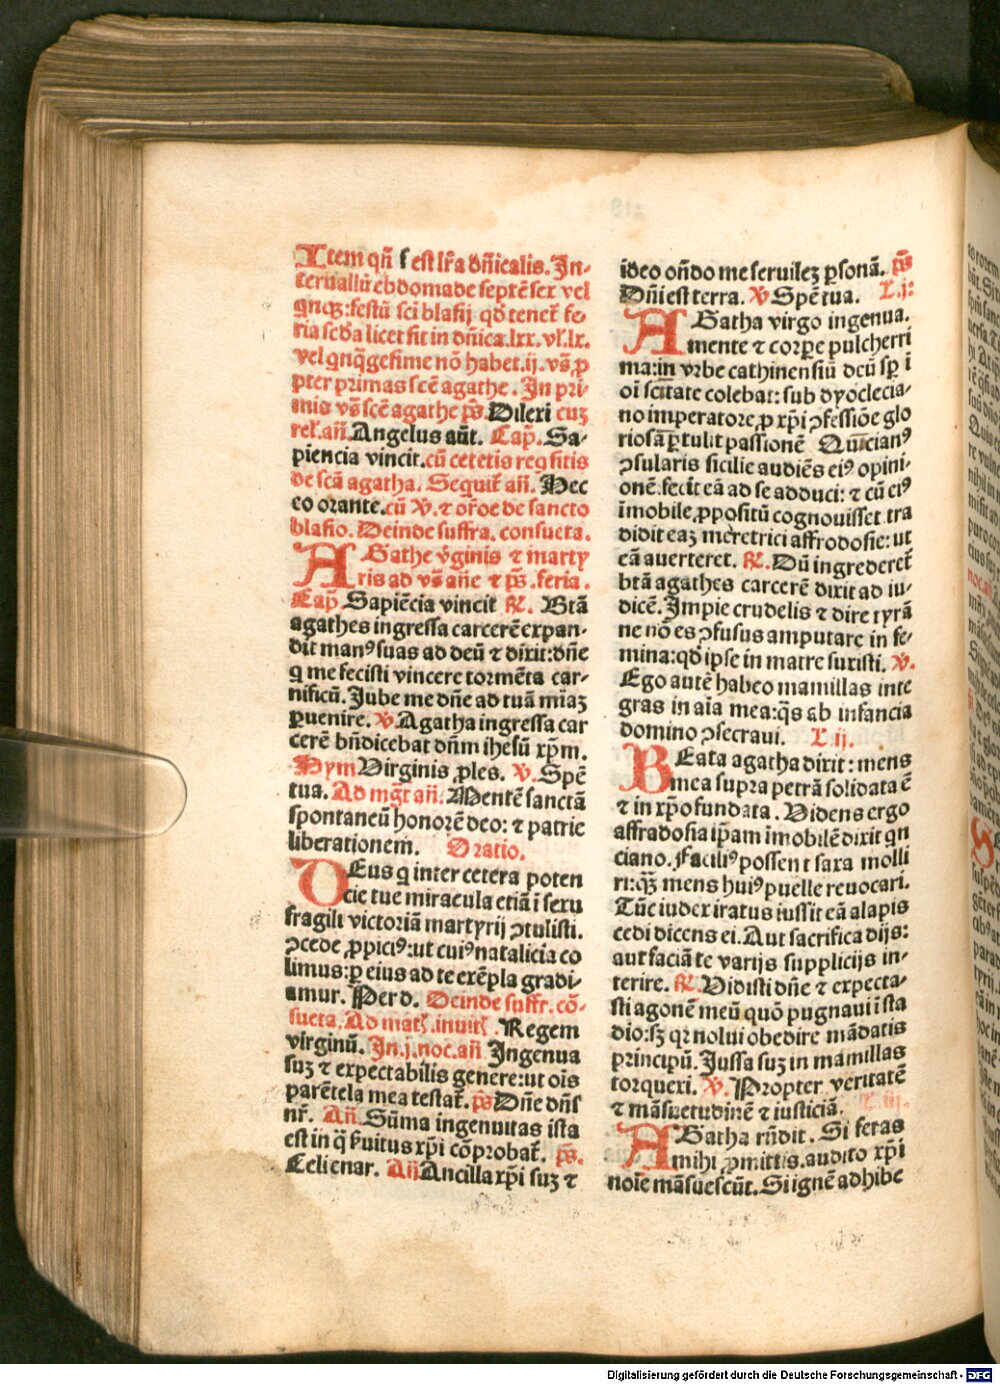 Item qñ f est lr̃a dñicalis. In-
teruallū ebdomade septē sex vel
qnqꝫ: festū sci blasij qd̕ tener̃ fe
ria scd̕a licet fit in dñica.lxx. vl̕.lx.
vel qnq̃gesime nō habet.ij. vs̄ ꝓ
pter primas scē agathe. In pri-
mis vs̄ scē agathe p̄s. Dilexi cuꝫ
rel̕. añ. Angelus aūt. Cap̄. Sa-
piencia vincit. cū ceteris reqsitis
de scā agatha. Sequit̃ añ. Hec
eo orante. cū ℣. ⁊ or̃oe de sancto
blasio. Deinde suffra. consueta.
AGathe v̕ginis ⁊ marty
ris ad vs̄ añe ⁊ p̄s. feria.
Cap̄. Sapiēcia vincit ℟. Btā
agathes ingressa carcerē expan-
dit manꝰ suas ad deū ⁊ dixit: dñe
q me fecisti vincere tormēta car-
nificū. Jube me dñe ad tuā miaꝫ
ꝑuenire. ℣. Agatha ingressa car
cerē bñdicebat dñm ihesū xp̄m.
Hym Virginis ꝓles. ℣. Spē
tua. Ad mgt̄ añ. Mentē sanctā
spontaneū honorē deo: ⁊ patrie
liberationem. Oratio.
DEus q inter cetera poten
cie tue miracula etiā i sexu
fragili victoriā martyrij ↄtulisti.
ↄcede ꝓpiciꝰ: ut cuiꝰ natalicia co
limus: ꝑ eius ad te exēpla gradi-
amur. Per d. Deinde suffr. cō-
sueta. Ad mat̕. inuit̕. Regem
virginū. In.j. noc. añ Ingenua
suꝫ ⁊ expectabilis genere: ut oīs
parētela mea testat̃. p̄s Dñe dñs
nr̃. Añ. Sūma ingenuitas ista
est in q̄ ẜuitus xp̄i cōprobat̃. p̄s.
Celi enar. Añ Ancilla xp̄i suꝫ ⁊
ideo oñdo me seruileꝫ ꝑsonā. p̄s
Dñi est terra. ℣ Spē tua. L.j:
AGatha virgo ingenua.
mente ⁊ corꝑe pulcherri
ma: in vrbe cathinensiū dcū sp̄ ī
oī scītate colebat: sub dyoclecia-
no imperatore, ꝓ xp̄i ↄfessiōe glo
riosā ꝑtulit passionē Quīcianꝰ
ↄsularis sicilie audiēs eiꝰ opini-
onē: fecit eā ad se adduci: ⁊ cū eiꝰ
īmobile ꝓpositū cognouisset tra
didit eaꝫ meretrici affrodosie: ut
eā auerteret. ℟. Dū ingrederet̃
btā agathes carcerē dixit ad iu-
dicē. Impie crudelis ⁊ dire tyrā
ne nō es ↄfusus amputare in fe-
mina: qd̕ ipse in matre suxisti. ℣.
Ego autē habeo mamillas inte
gras in aīa mea: q̄s ab infancia
domino ↄsecraui. L.ij.
BEata agatha dixit: mens
mea supra petrā solidata ē
⁊ in xp̄o fundata. Videns ergo
affradosia ip̄am īmobilē dixit qn
ciano. Faciliꝰ possent saxa molli
ri: qꝫ mens huiꝰ puelle reuocari.
Tūc iudex iratus iussit eā alapis
cedi dicens ei. Aut sacrifica dijs:
aut faciā te varijs supplicijs in-
terire. ℟. Vidisti dñe ⁊ expecta-
sti agonē meū quō pugnaui ī sta
dio: sꝫ qꝛ nolui obedire mādatis
principū. Jussa suꝫ in mamillas
torqueri. ℣. Propter veritatē
⁊ māsuetudinē ⁊ iusticiā. L.iij.
AGatha rn̄dit. Si feras
mihi ꝓmittis. audito xp̄i
noīe māsuescūt. Si ignē adhibe
Digitalisierung gefördert durch die Deutsche Forschungsgemeinschaft - DFG